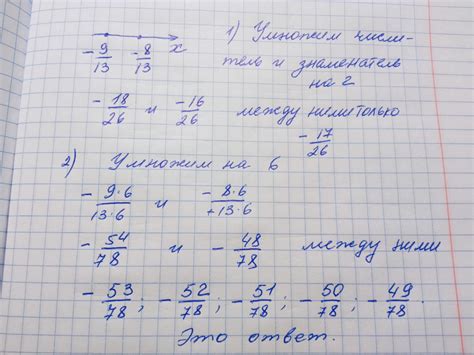 -9/13 -8/13 x
1) Умножим числи-
тель и знаменатель
на 2
-18/26 и -16/26 между ними только
-17/26
2) Умножим на 6
-9·6/13·6 и -8·6/+13·6
-54/78 и -48/78 между ними
-53/78; -52/78; -51/78; -50/78; -49/78.
Это ответ.